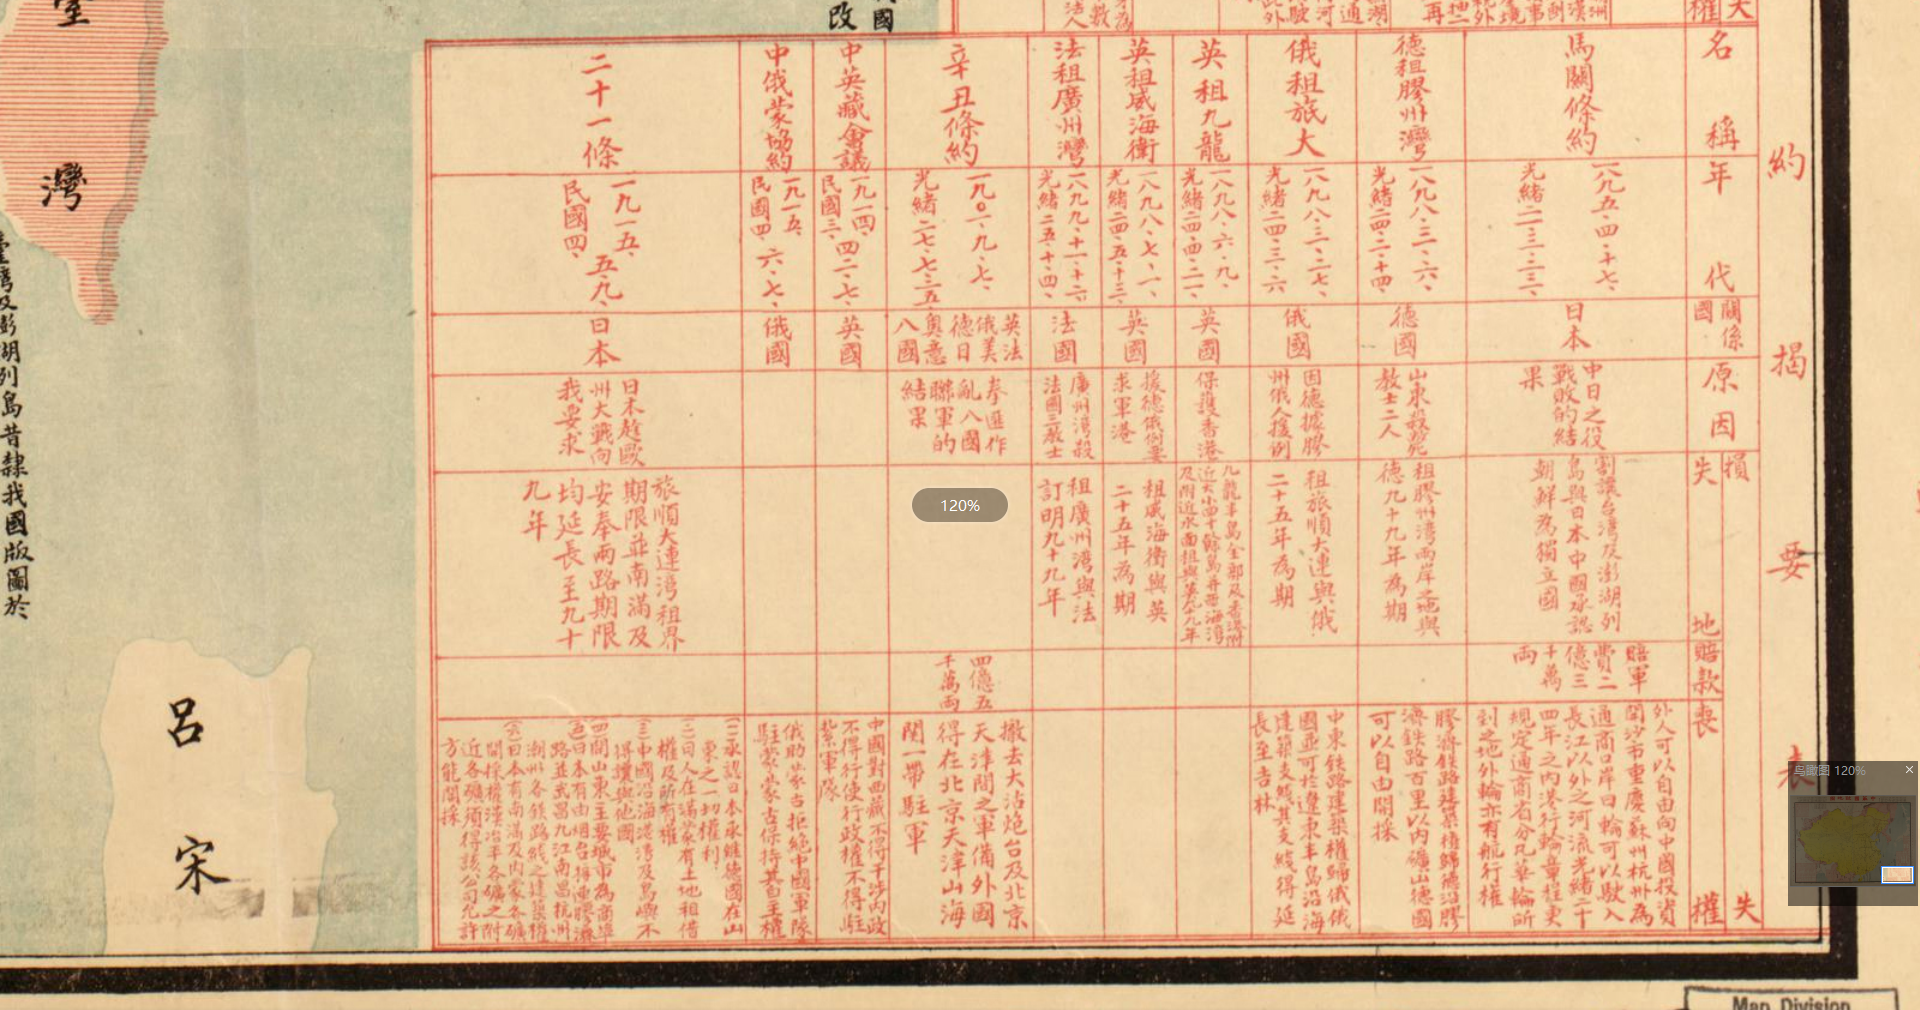 約揭要表
名稱
年代
關係國
原因
損失地
賠款
喪失權
馬關條約
一八九五、四、十七、
光緒二一、三、二三、
日本
中日之役
戰敗的結
果
割讓台灣及澎湖列
島與日本中國承認
朝鮮為獨立國
賠軍
費二
億三
千萬
兩
外人可以自由向中國投資
開沙市重慶蘇州杭州為
通商口岸日輪可以駛入
長江以外之河流光緒二十
四年之內港行輪章程更
規定通商省分凡華輪所
到之地外輪亦有航行權
德租膠州灣
一八九八、三、六、
光緒二四、二、十四、
德國
山東殺死
教士二人
租膠州灣兩岸之地與
德九十九年為期
膠濟鐵路建築權歸德沿膠
濟鐵路百里以內礦山德國
可以自由開採
俄租旅大
一八九八、三、二七、
光緒二四、三、六
俄國
因德據膠
州俄人援例
租旅順大連與俄
二十五年為期
中東鐵路建築權歸俄俄
國並可於遼東半島沿海
建築支綫其支綫得延
長至吉林
英租九龍
一八九八、六、九、
光緒二四、四、二一、
英國
保護香港
九龍半島全部及香港附
近大小四十餘島并兩海灣
及附近水面租與英九十九年
英租威海衛
一八九八、七、一、
光緒二四、五、十三、
英國
援德俄例要
求軍港
租威海衛與英
二十五年為期
法租廣州灣
一八九九、十一、十六
光緒二五、十、四、
法國
廣州灣殺
法國三教士
租廣州灣與法
訂明九十九年
辛丑條約
一九〇一、九、七、
光緒二七、七、二五、
英法
俄美
德日
奧意
八國
拳匪作
亂八國
聯軍的
結果
四億五
千萬兩
撤去大沽炮台及北京
天津間之軍備外國
得在北京天津山海
關一帶駐軍
中英藏會議
一九一四、
民國三、四二、七、
英國
中國對西藏不得干涉內政
不得行使行政權不得駐
紮軍隊
中俄蒙協約
一九一五、
民國四、六、七、
俄國
俄助蒙古拒絕中國軍隊
駐蒙蒙古保持其自主權
二十一條
一九一五、五、九、
民國四、
日本
日本趁歐
州大戰向
我要求
旅順大連灣租界
期限並南滿及
安奉兩路期限
均延長至九十
九年
(一)承認日本承繼德國在山
東之一切權利
(二)日人在滿蒙有土地租借
權及所有權
(三)中國沿海港灣及島嶼不
得讓與他國
(四)開山東主要城市為商埠
(五)日本有由烟台接連膠濟
路並武昌九江南昌杭州
潮州各鐵路綫之建築權
(六)日本有南滿及內蒙各礦
開採權漢冶平各礦之附
近各礦須得該公司允許
方能開採
臺灣
臺灣及澎湖列島昔隸我國版圖於
呂宋
120%
鸟瞰图 120%
Map Division